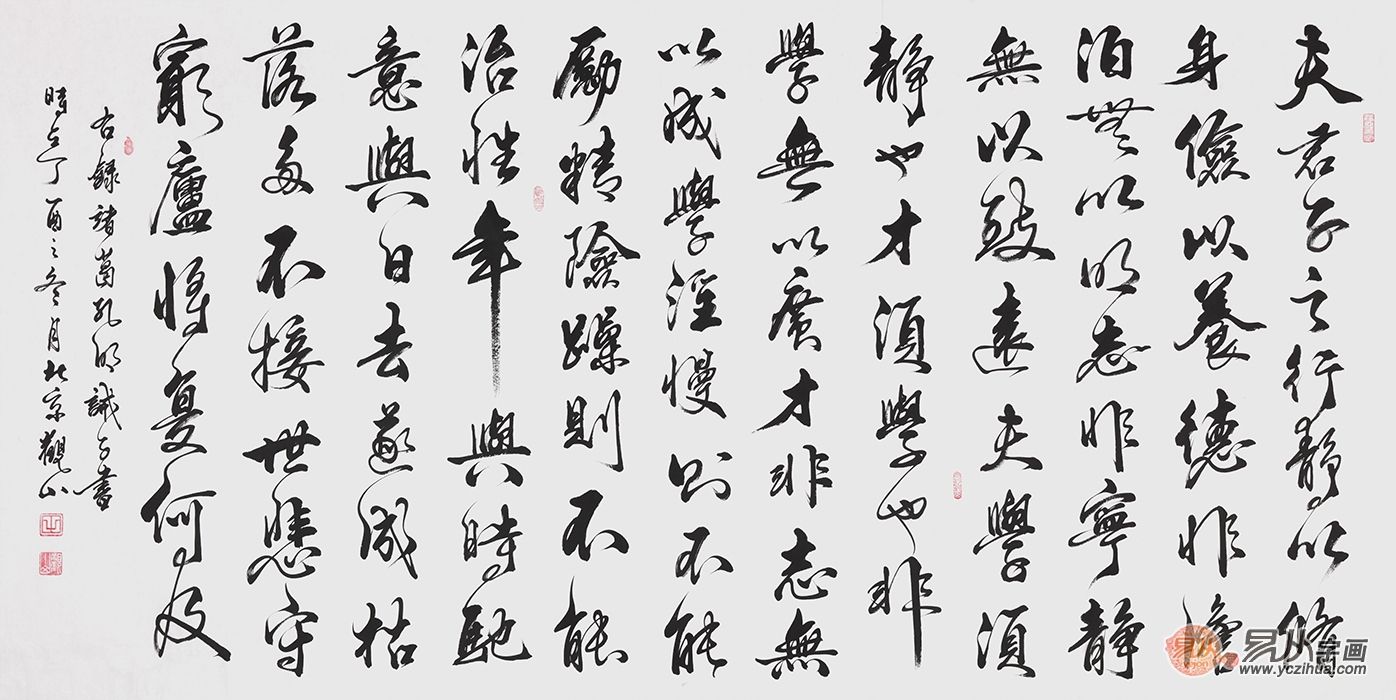 夫君子之行靜以脩
身儉以養德非澹
泊無以明志非寧靜
無以致遠夫學須
靜也才須學也非
學無以廣才非志無
以成學淫慢則不能
勵精險躁則不能
治性年與時馳
意與日去遂成枯
落多不接世悲守
窮廬將复何及
右錄諸葛孔明誡子書
時在丁酉之冬月北京觀山
易从字画
www.yczihua.com